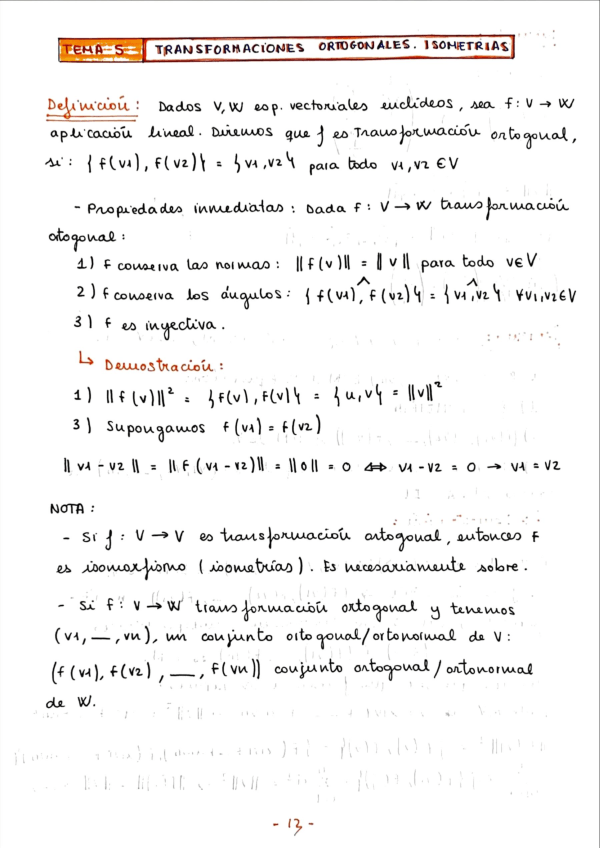 TEMA 5 TRANSFORMACIONES ORTOGONALES. ISOMETRIAS
Definición: Dados V, W esp. vectoriales euclídeos, sea f: V → W
aplicación lineal. Diremos que f es Transformación ortogonal,
si: { f(v1), f(v2)} = {v1, v2} para todo v1, v2 ∈ V
- Propiedades inmediatas: Dada f: V → W transformación
ortogonal:
1) f conserva las normas: || f(v) || = || v || para todo v ∈ V
2) f conserva los ángulos: { f(v1) ^, f(v2)} = {v1 ^, v2} ∀ v1, v2 ∈ V
3) f es inyectiva.
↳ Demostración:
1) || f(v) ||² = {f(v), f(v)} = {u, v} = ||v||²
3) Supongamos f(v1) = f(v2)
|| v1 - v2 || = || f(v1 - v2) || = ||0|| = 0 ⇔ v1 - v2 = 0 → v1 = v2
NOTA:
- Si f: V → V es transformación ortogonal, entonces f
es isomorfismo (isometrías). Es necesariamente sobre.
- Si f: V → W transformación ortogonal y tenemos
(v1, __, vn), un conjunto ortogonal/ortonormal de V:
(f(v1), f(v2), __, f(vn)) conjunto ortogonal/ortonormal
de W.
- 13 -